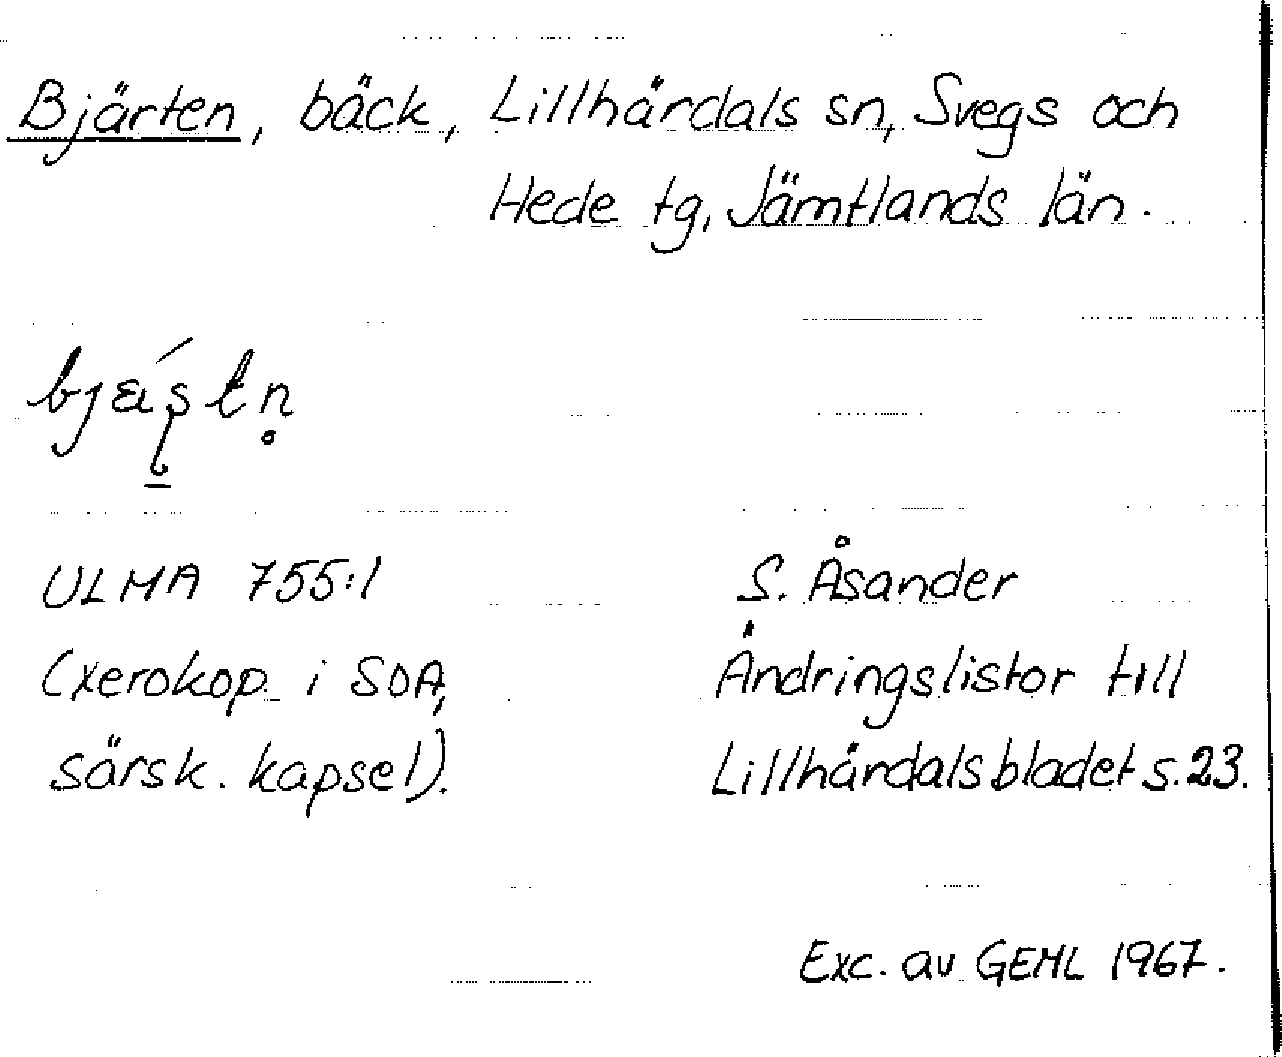 Bjärten, bäck, Lillhärdals sn, Svegs och
Hede tg, Jämtlands län.
ULMA 755:1
(xerokop. i SOA,
särsk. kapsel).
S. Åsander
Ändringslistor till
Lillhärdalsbladet s. 23.
Exc. av GEHL 1967.